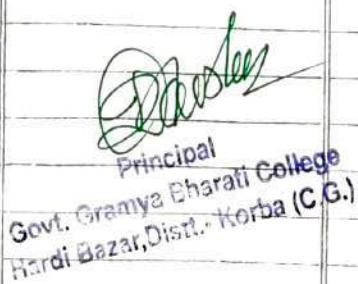 Principal
Govt. Gramya Bharati College
Hardi Bazar, Distt.- Korba (C.G.)